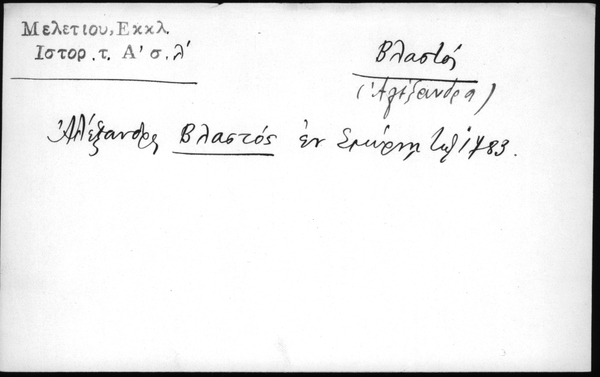 Μελετίου, Εκκλ.
Ιστορ. τ. Α' σ. λ'
Βλαστός
(Ἀλέξανδρος)
Ἀλέξανδρος Βλαστός ἐν Σμύρνῃ 1783.